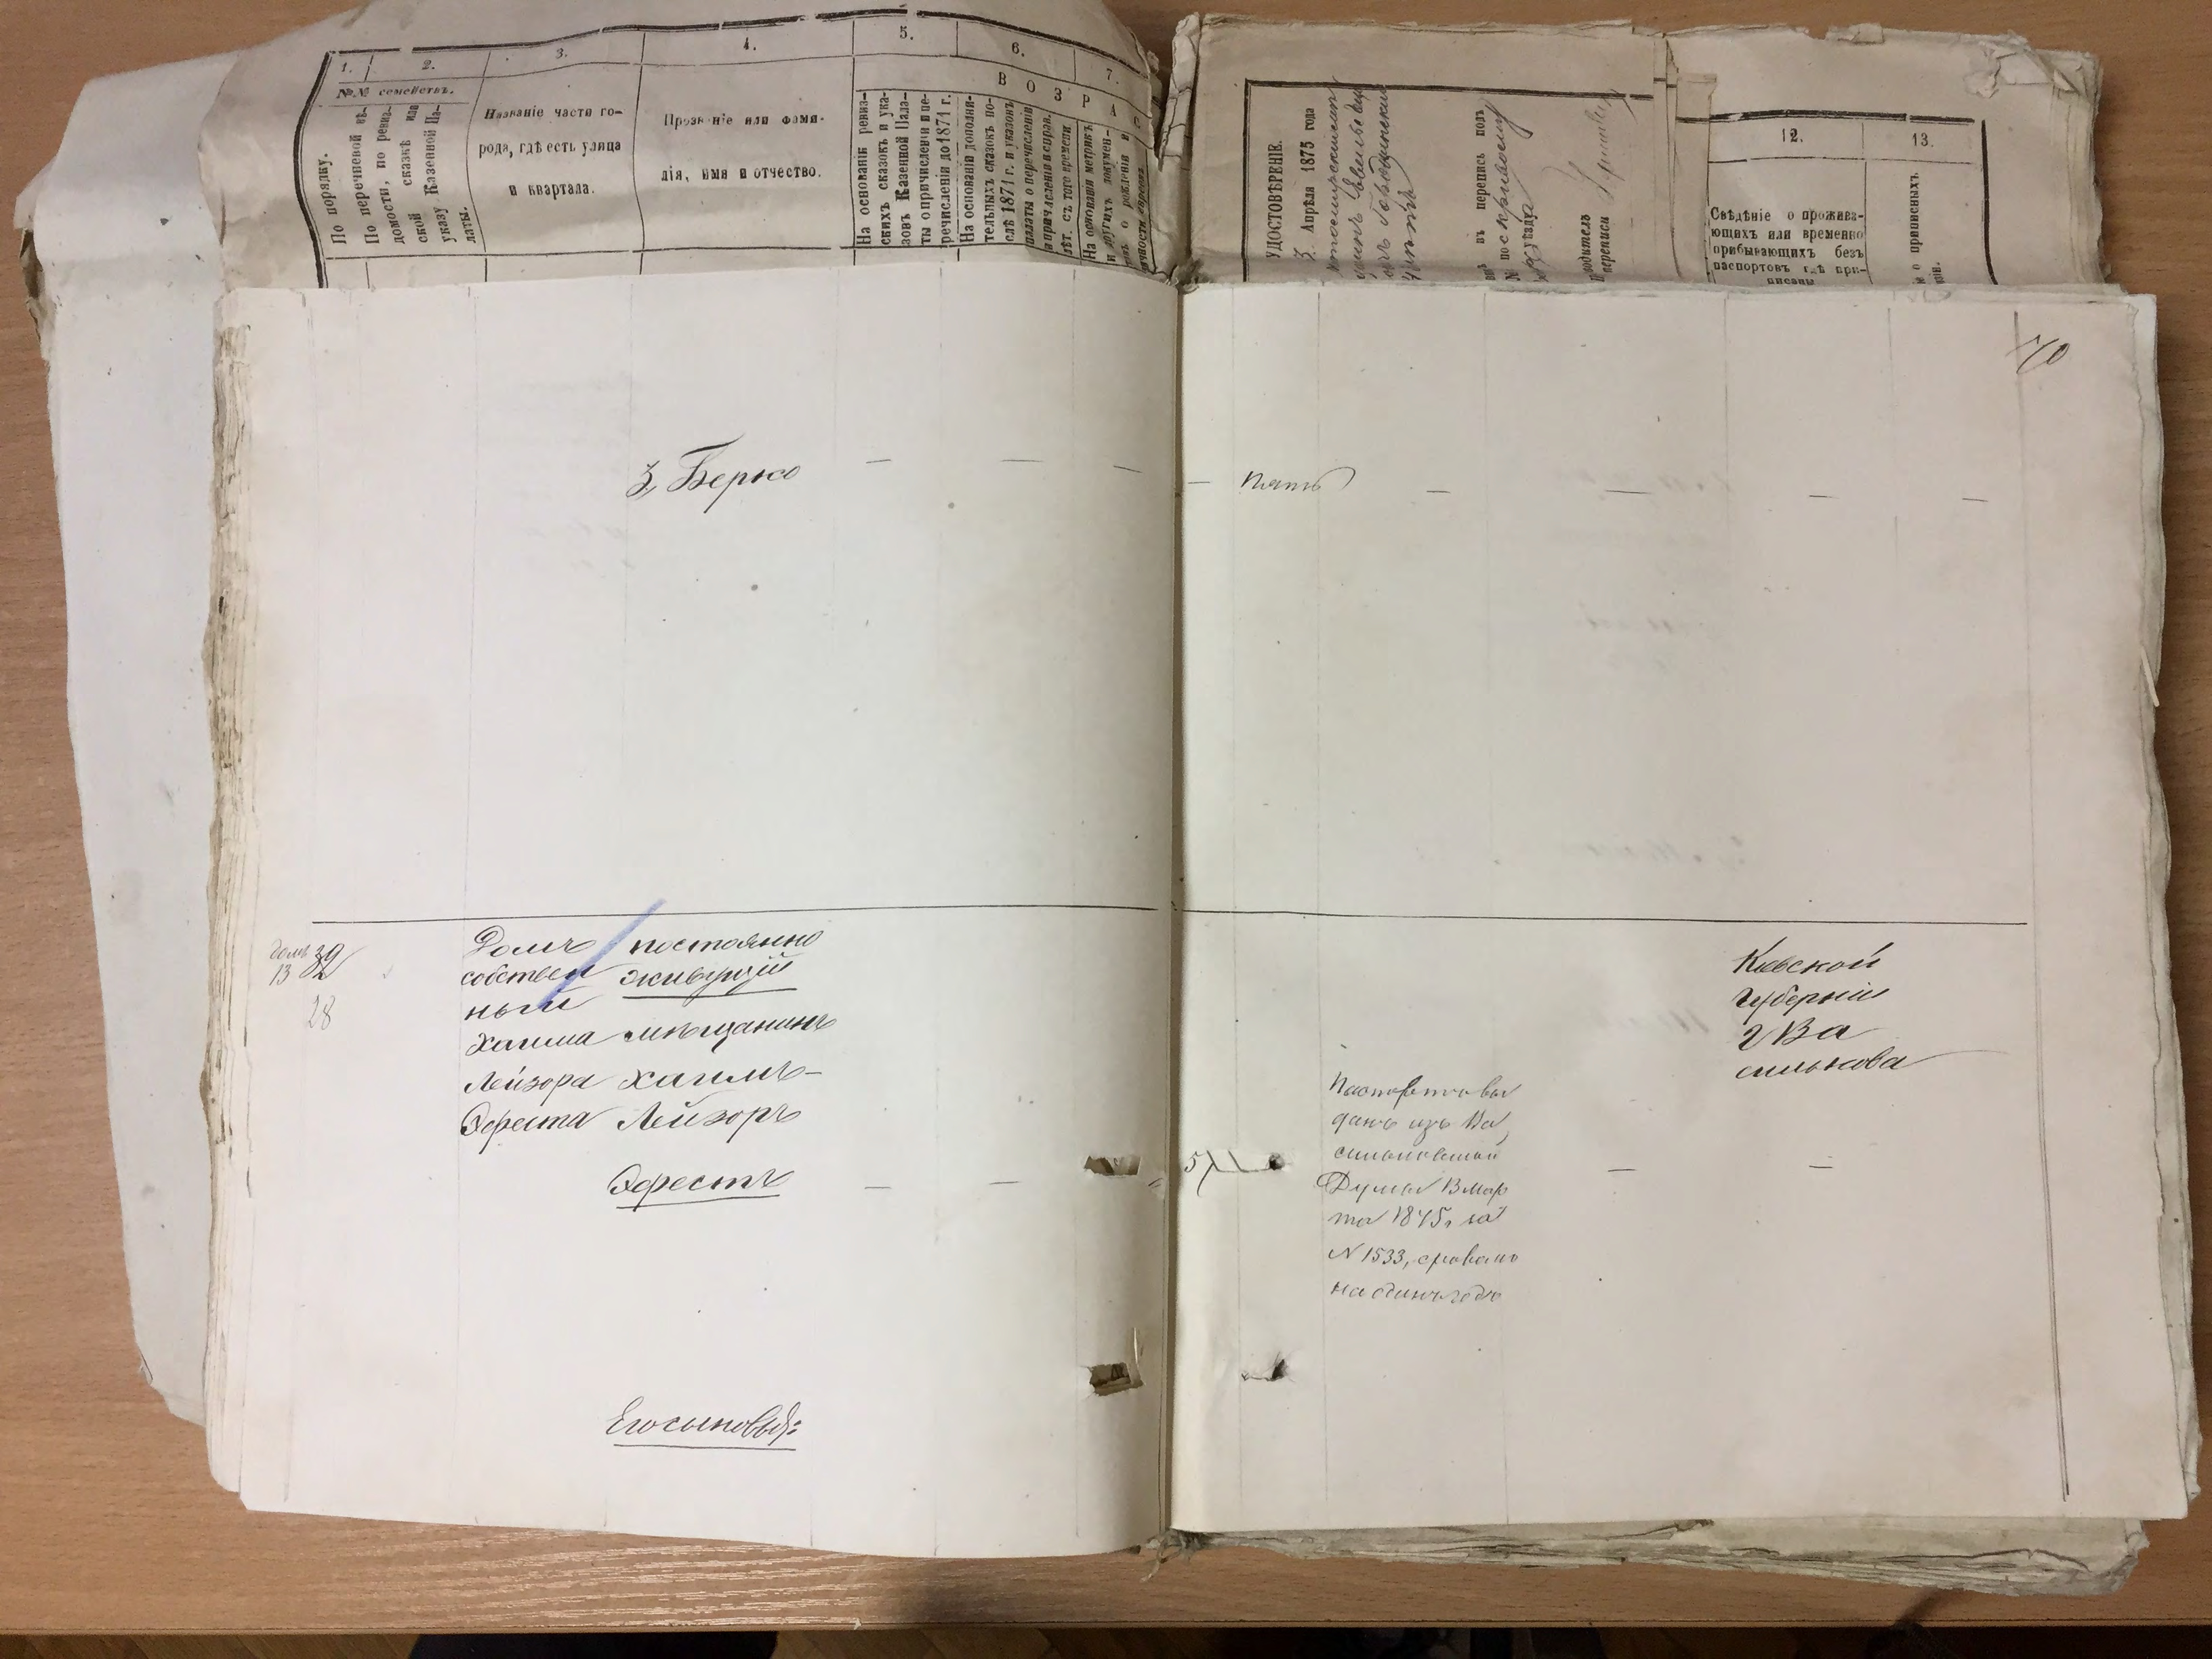 1.
2.
3.
4.
5.
6.
7.
№№ семействъ.
В О З Р А С
По порядку.
По перечневой вѣ-
домости, по ревиз-
ской сказкѣ или
указу Казенной Па-
латы.
Названіе части го-
рода, гдѣ есть улица
и квартала.
Прозваніе или фами-
лія, имя и отчество.
На основаніи ревиз-
скихъ сказокъ и ука-
зовъ Казенной Пала-
ты о причисленіи и пе-
речисленіи до 1871 г.
На основаніи дополни-
тельныхъ сказокъ по-
слѣ 1871 г. и указовъ
палаты о перечисленіи
и причисленіи и исправ.
лѣт. съ того времени.
На основаніи метрикъ
и другихъ докумен-
о рожденіи и
УДОСТОВѢРЕНІЕ.
3. Апрѣля 1875 года
въ перепись подъ
№ по
уѣзда
переписи
12.
13.
Свѣдѣніе о прожива-
ющихъ или временно
прибывающихъ безъ
паспортовъ гдѣ при-
писаны
о приписныхъ.
70
3, Берко — — —
— пять — — — —
домъ 39
13
28
Домъ
собствен
ный
Хаима
Лейзора
Эфеста
постоянно
живущій
мѣщанинъ
Хаимъ-
Лейзоръ
Эфестъ — —
Его сыновья:
51
Паспортъ вы
данъ изъ Ва
сильковской
Думы 13 Мар
та 1875 г за
N 1533, срокомъ
на одинъ годъ
— —
Кіевской
Губерніи
г Ва
силькова